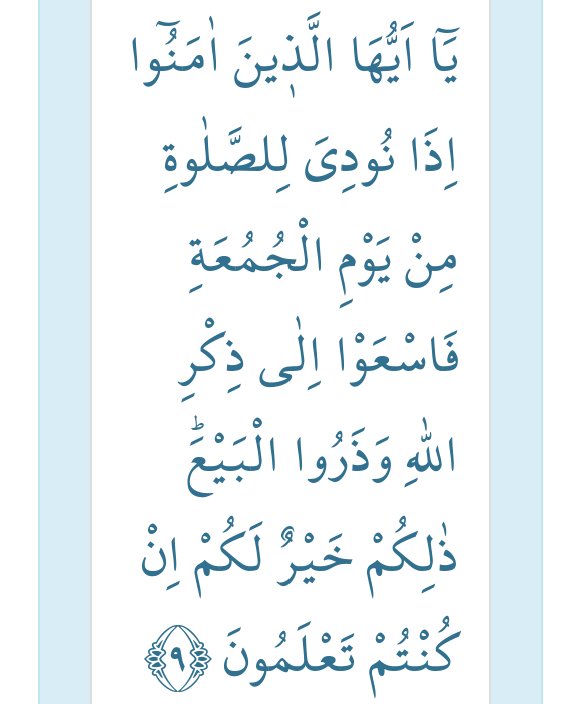 يَٓا اَيُّهَا الَّذ۪ينَ اٰمَنُٓوا
اِذَا نُودِيَ لِلصَّلٰوةِ
مِنْ يَوْمِ الْجُمُعَةِ
فَاسْعَوْا اِلٰى ذِكْرِ
اللّٰهِ وَذَرُوا الْبَيْعَۜ
ذٰلِكُمْ خَيْرٌ لَكُمْ اِنْ
كُنْتُمْ تَعْلَمُونَ ﴿٩﴾